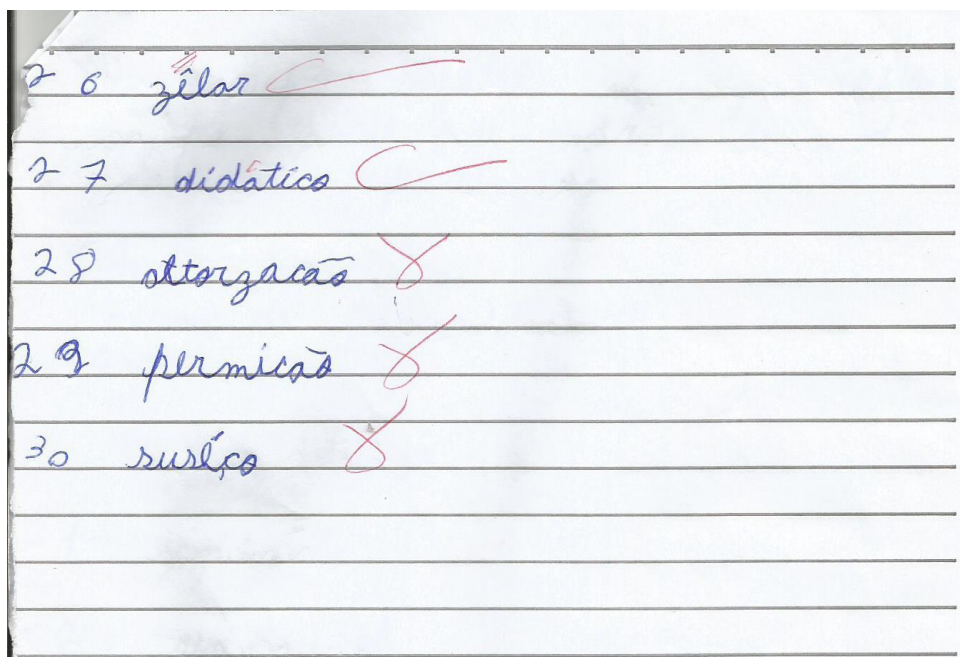 26 zêlar
27 didático
28 attorzacaõ
29 permicaõ
30 suséço